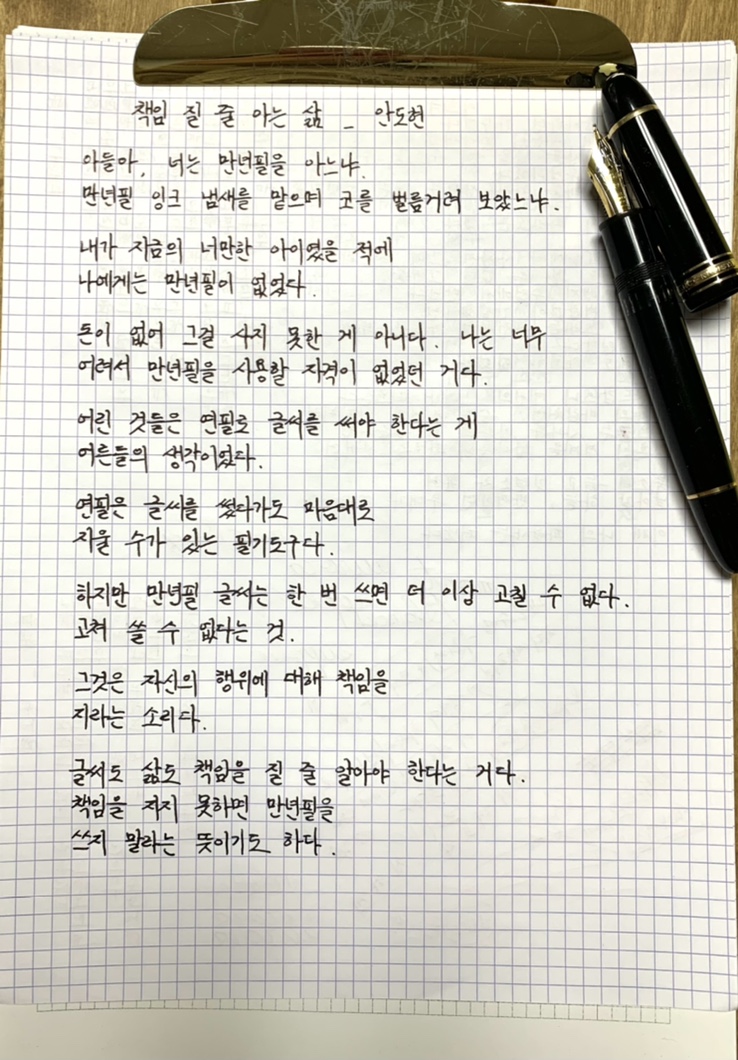 책임 질 줄 아는 삶 - 안도현
아들아, 너는 만년필을 아느냐.
만년필 잉크 냄새를 맡으며 코를 벌름거려 보았느냐.
내가 지금의 너만한 아이였을 적에
나에게는 만년필이 없었다.
돈이 없어 그걸 사지 못한 게 아니다. 나는 너무
어려서 만년필을 사용할 자격이 없었던 거다.
어린 것들은 연필로 글씨를 써야 한다는 게
어른들의 생각이었다.
연필은 글씨를 썼다가도 마음대로
지울 수가 있는 필기도구다.
하지만 만년필 글씨는 한 번 쓰면 더 이상 고칠 수 없다.
고쳐 쓸 수 없다는 것.
그것은 자신의 행위에 대해 책임을
지라는 소리다.
글씨도 삶도 책임을 질 줄 알아야 한다는 거다.
책임을 지지 못하면 만년필을
쓰지 말라는 뜻이기도 하다.